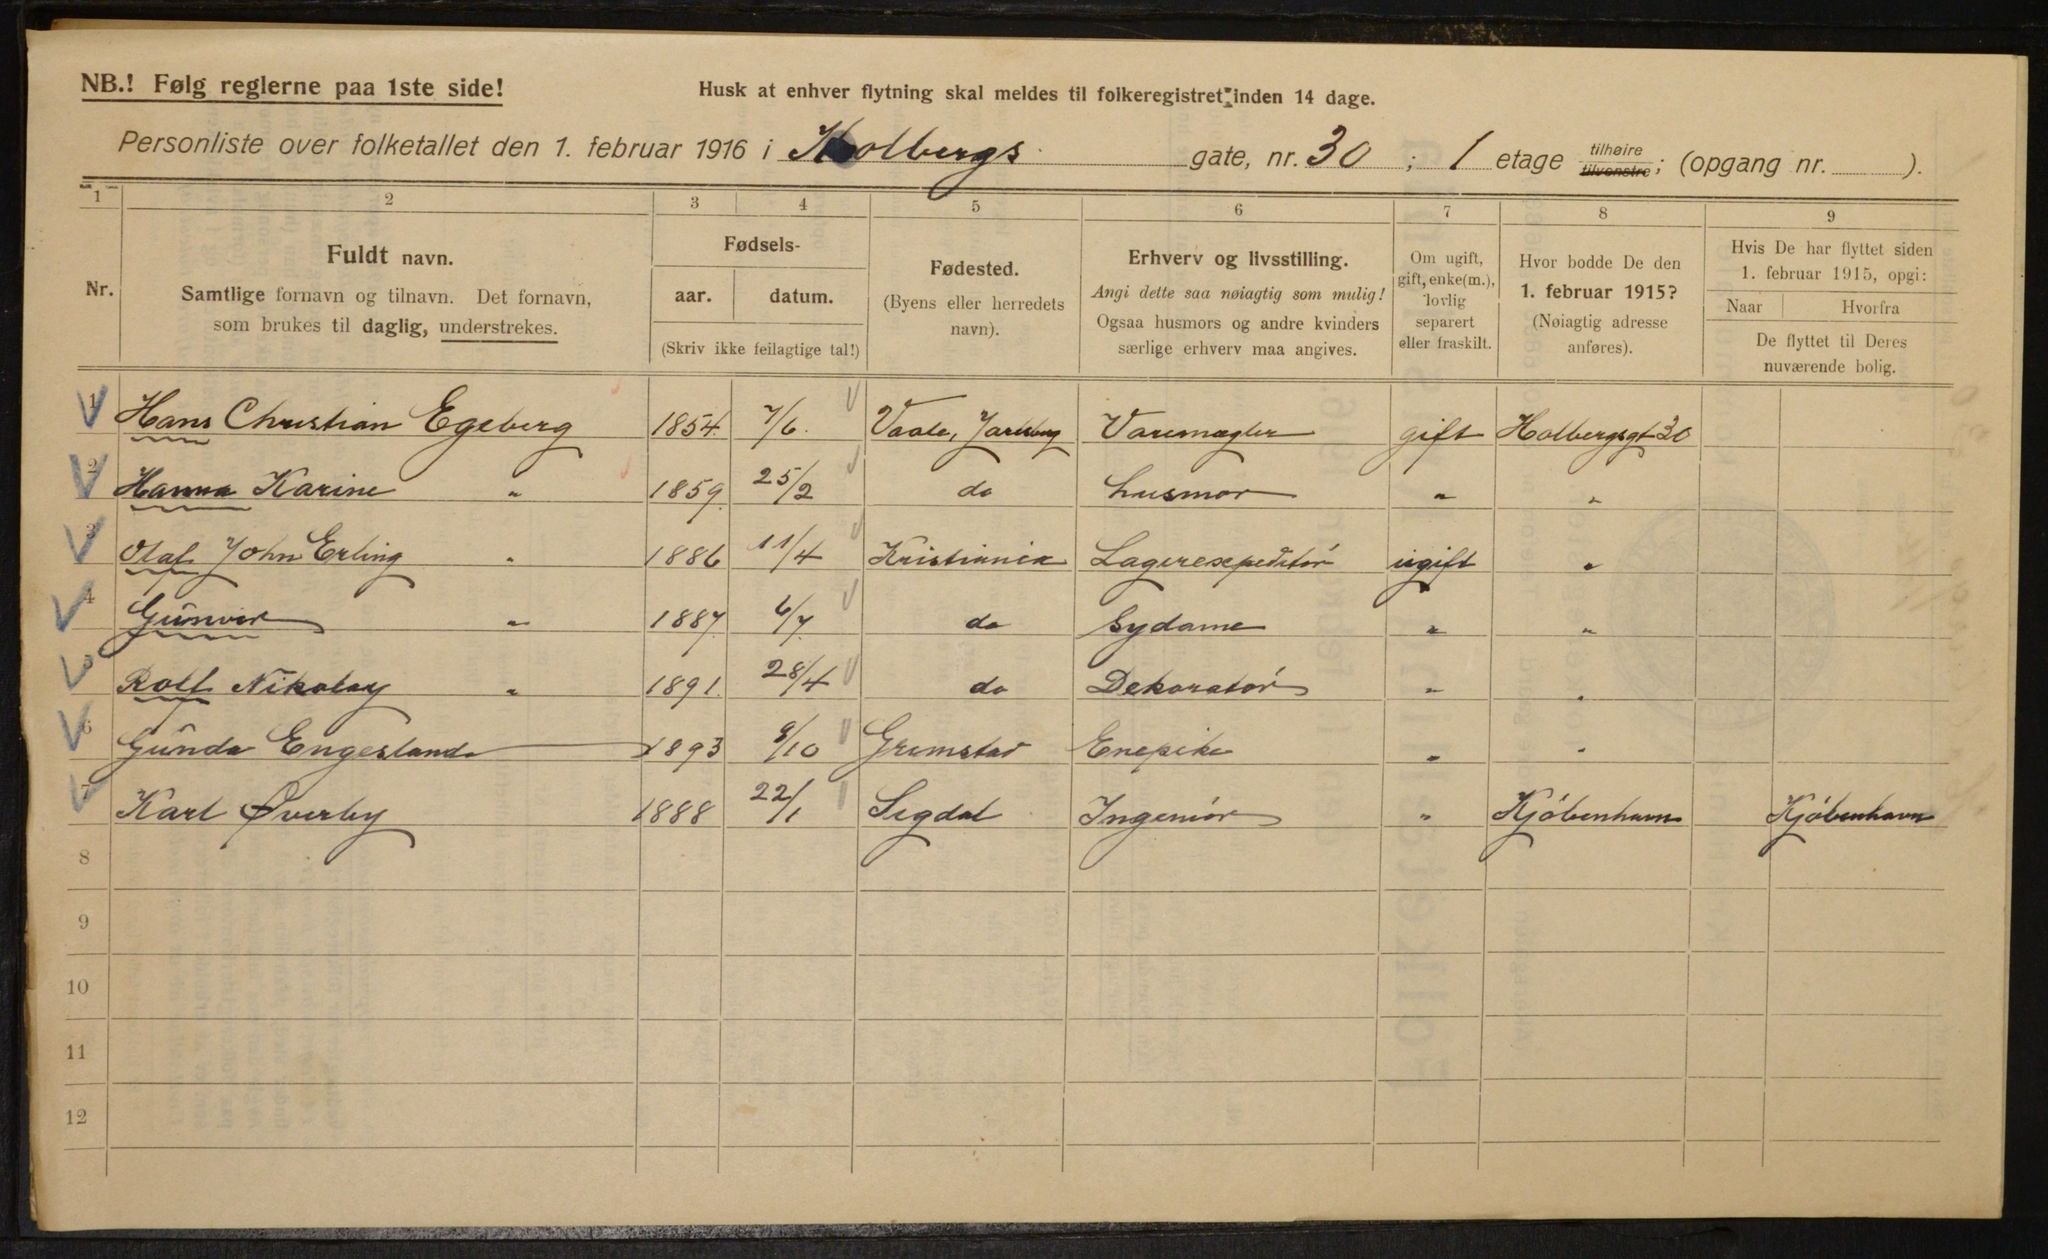 NB.! Følg reglerne paa 1ste side!
Husk at enhver flytning skal meldes til folkeregistret inden 14 dage.
Personliste over folketallet den 1. februar 1916 i Holbergs gate, nr. 30 ; 1 etage tilhøire tilvenstre; (opgang nr. ).
1 2 3 4 5 6 7 8 9
Nr.
Fuldt navn.
Samtlige fornavn og tilnavn. Det fornavn,
som brukes til daglig, understrekes.
Fødsels-
aar. datum.
(Skriv ikke feilagtige tal!)
Fødested.
(Byens eller herredets
navn).
Erhverv og livsstilling.
Angi dette saa nøiagtig som mulig!
Ogsaa husmors og andre kvinders
særlige erhverv maa angives.
Om ugift,
gift, enke(m.),
lovlig
separert
eller fraskilt.
Hvor bodde De den
1. februar 1915?
(Nøiagtig adresse
anføres).
Hvis De har flyttet siden
1. februar 1915, opgi:
Naar Hvorfra
De flyttet til Deres
nuværende bolig.
1 Hans Christian Egeberg 1854 7/6 Vaale, Jarlsberg Varemægler gift Holbergsgt 30
2 Hanna Karine " 1859 25/2 do husmor " "
3 Olaf John Erling " 1886 11/4 Kristiania Lagerexpeditör ugift "
4 Gunvor " 1887 6/7 do Sydame " "
5 Rolf Nikolay " 1891 28/4 do Dekoratör " "
6 Gunda Engesland 1893 8/10 Grimstad Enepike " "
7 Karl Øverby 1888 22/1 Sigdal Ingeniör " Kjöbenhavn Kjöbenhavn
8
9
10
11
12